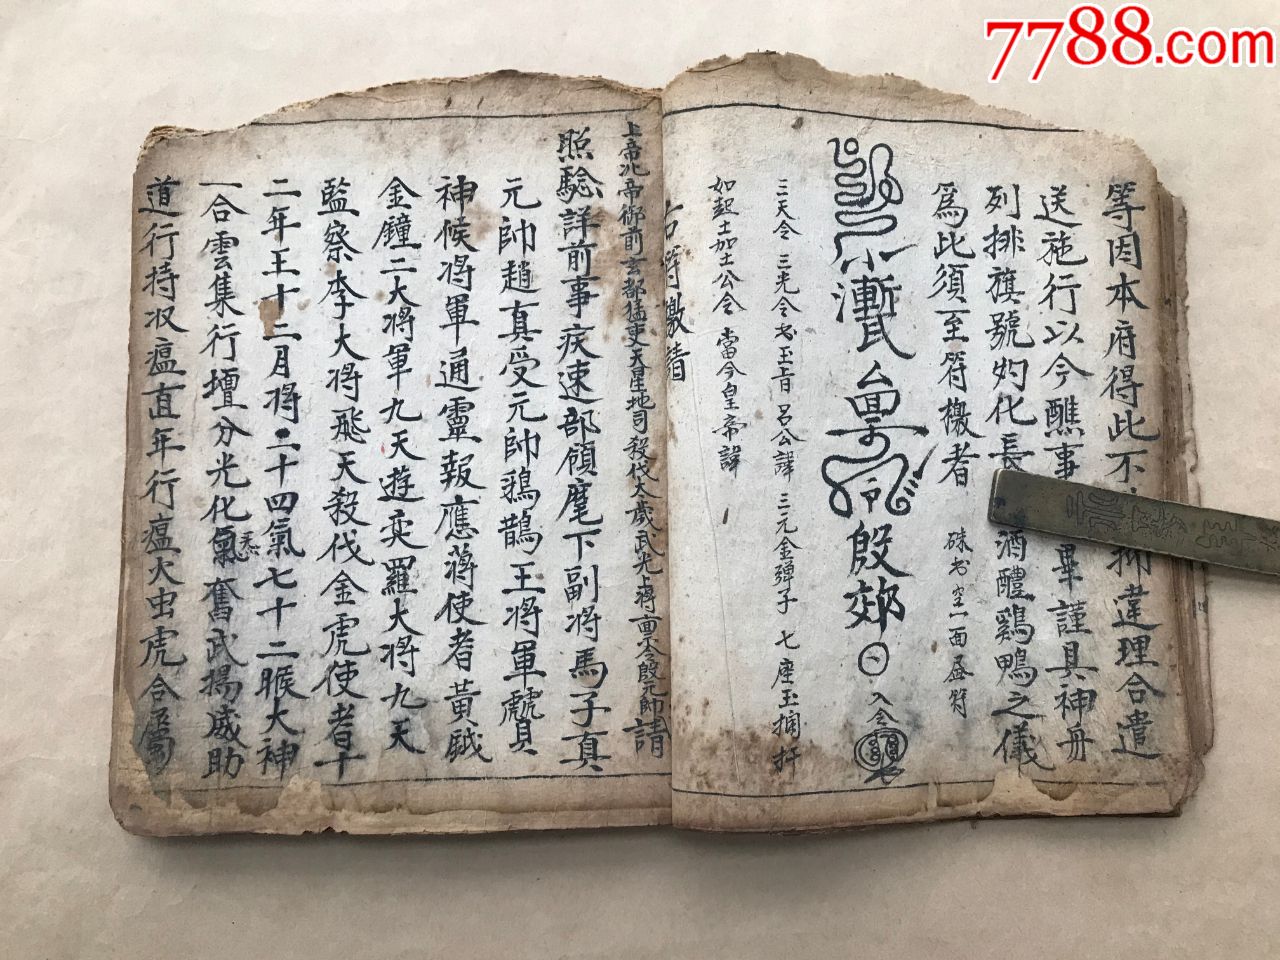 7788.com
等因本府得此不 違理合遣
送施行以今醮事 畢謹具神冊
列排旗號灼化長 酒醴鷄鴨之儀
爲此須至符檄者 硃书空一面昼符
殷郊 入令
三天令 三光令 书玉音 呂公諱 三元金彈子 七座玉 
如起土加土公令 當今皇帝諱
右符檄請
上帝北帝御前玄都猛吏天星地司殺伐太歲武光上將 殷元帥請
照驗詳前事疾速部領麾下副將馬子真
元帥趙真受元帥鵶鵲王將軍 
神候將軍通靈報應蒋使者黃鉞
金鐘二大將軍九天遊奕羅大將九天
監察李大將飛天殺伐金虎使者十
二年王十二月將二十四氣七十二睺大神
一合雲集行壇分光化氣奮武揚威助
道行持收瘟直年行瘟大虫虎合屬